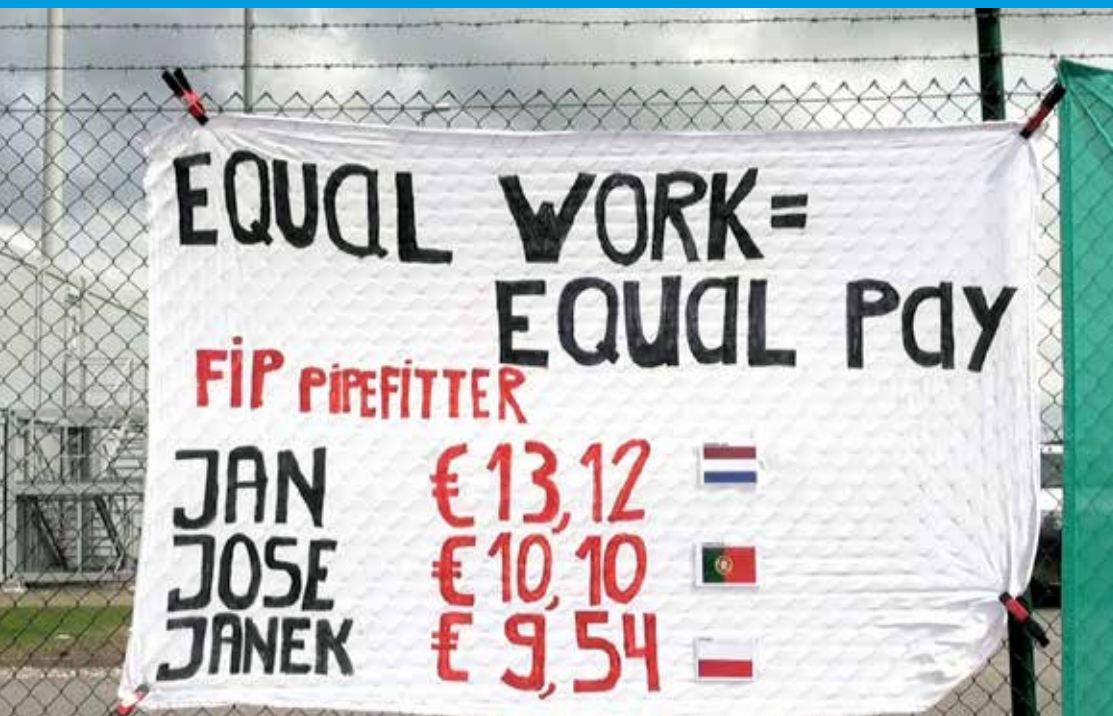 EQUAL WORK=
EQUAL PAY
FiP PiPEFiTTER
JAN € 13,12
JOSE € 10,10
JANEK € 9,54